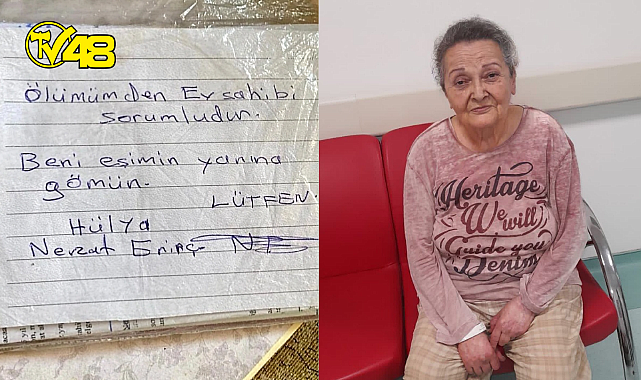 TV48
Ölümümden Ev sahibi
sorumludur.
Beni eşimin yanına
gömün.
LÜTFEN.
Hülya
Nevzat
Heritage
We will
Guide you